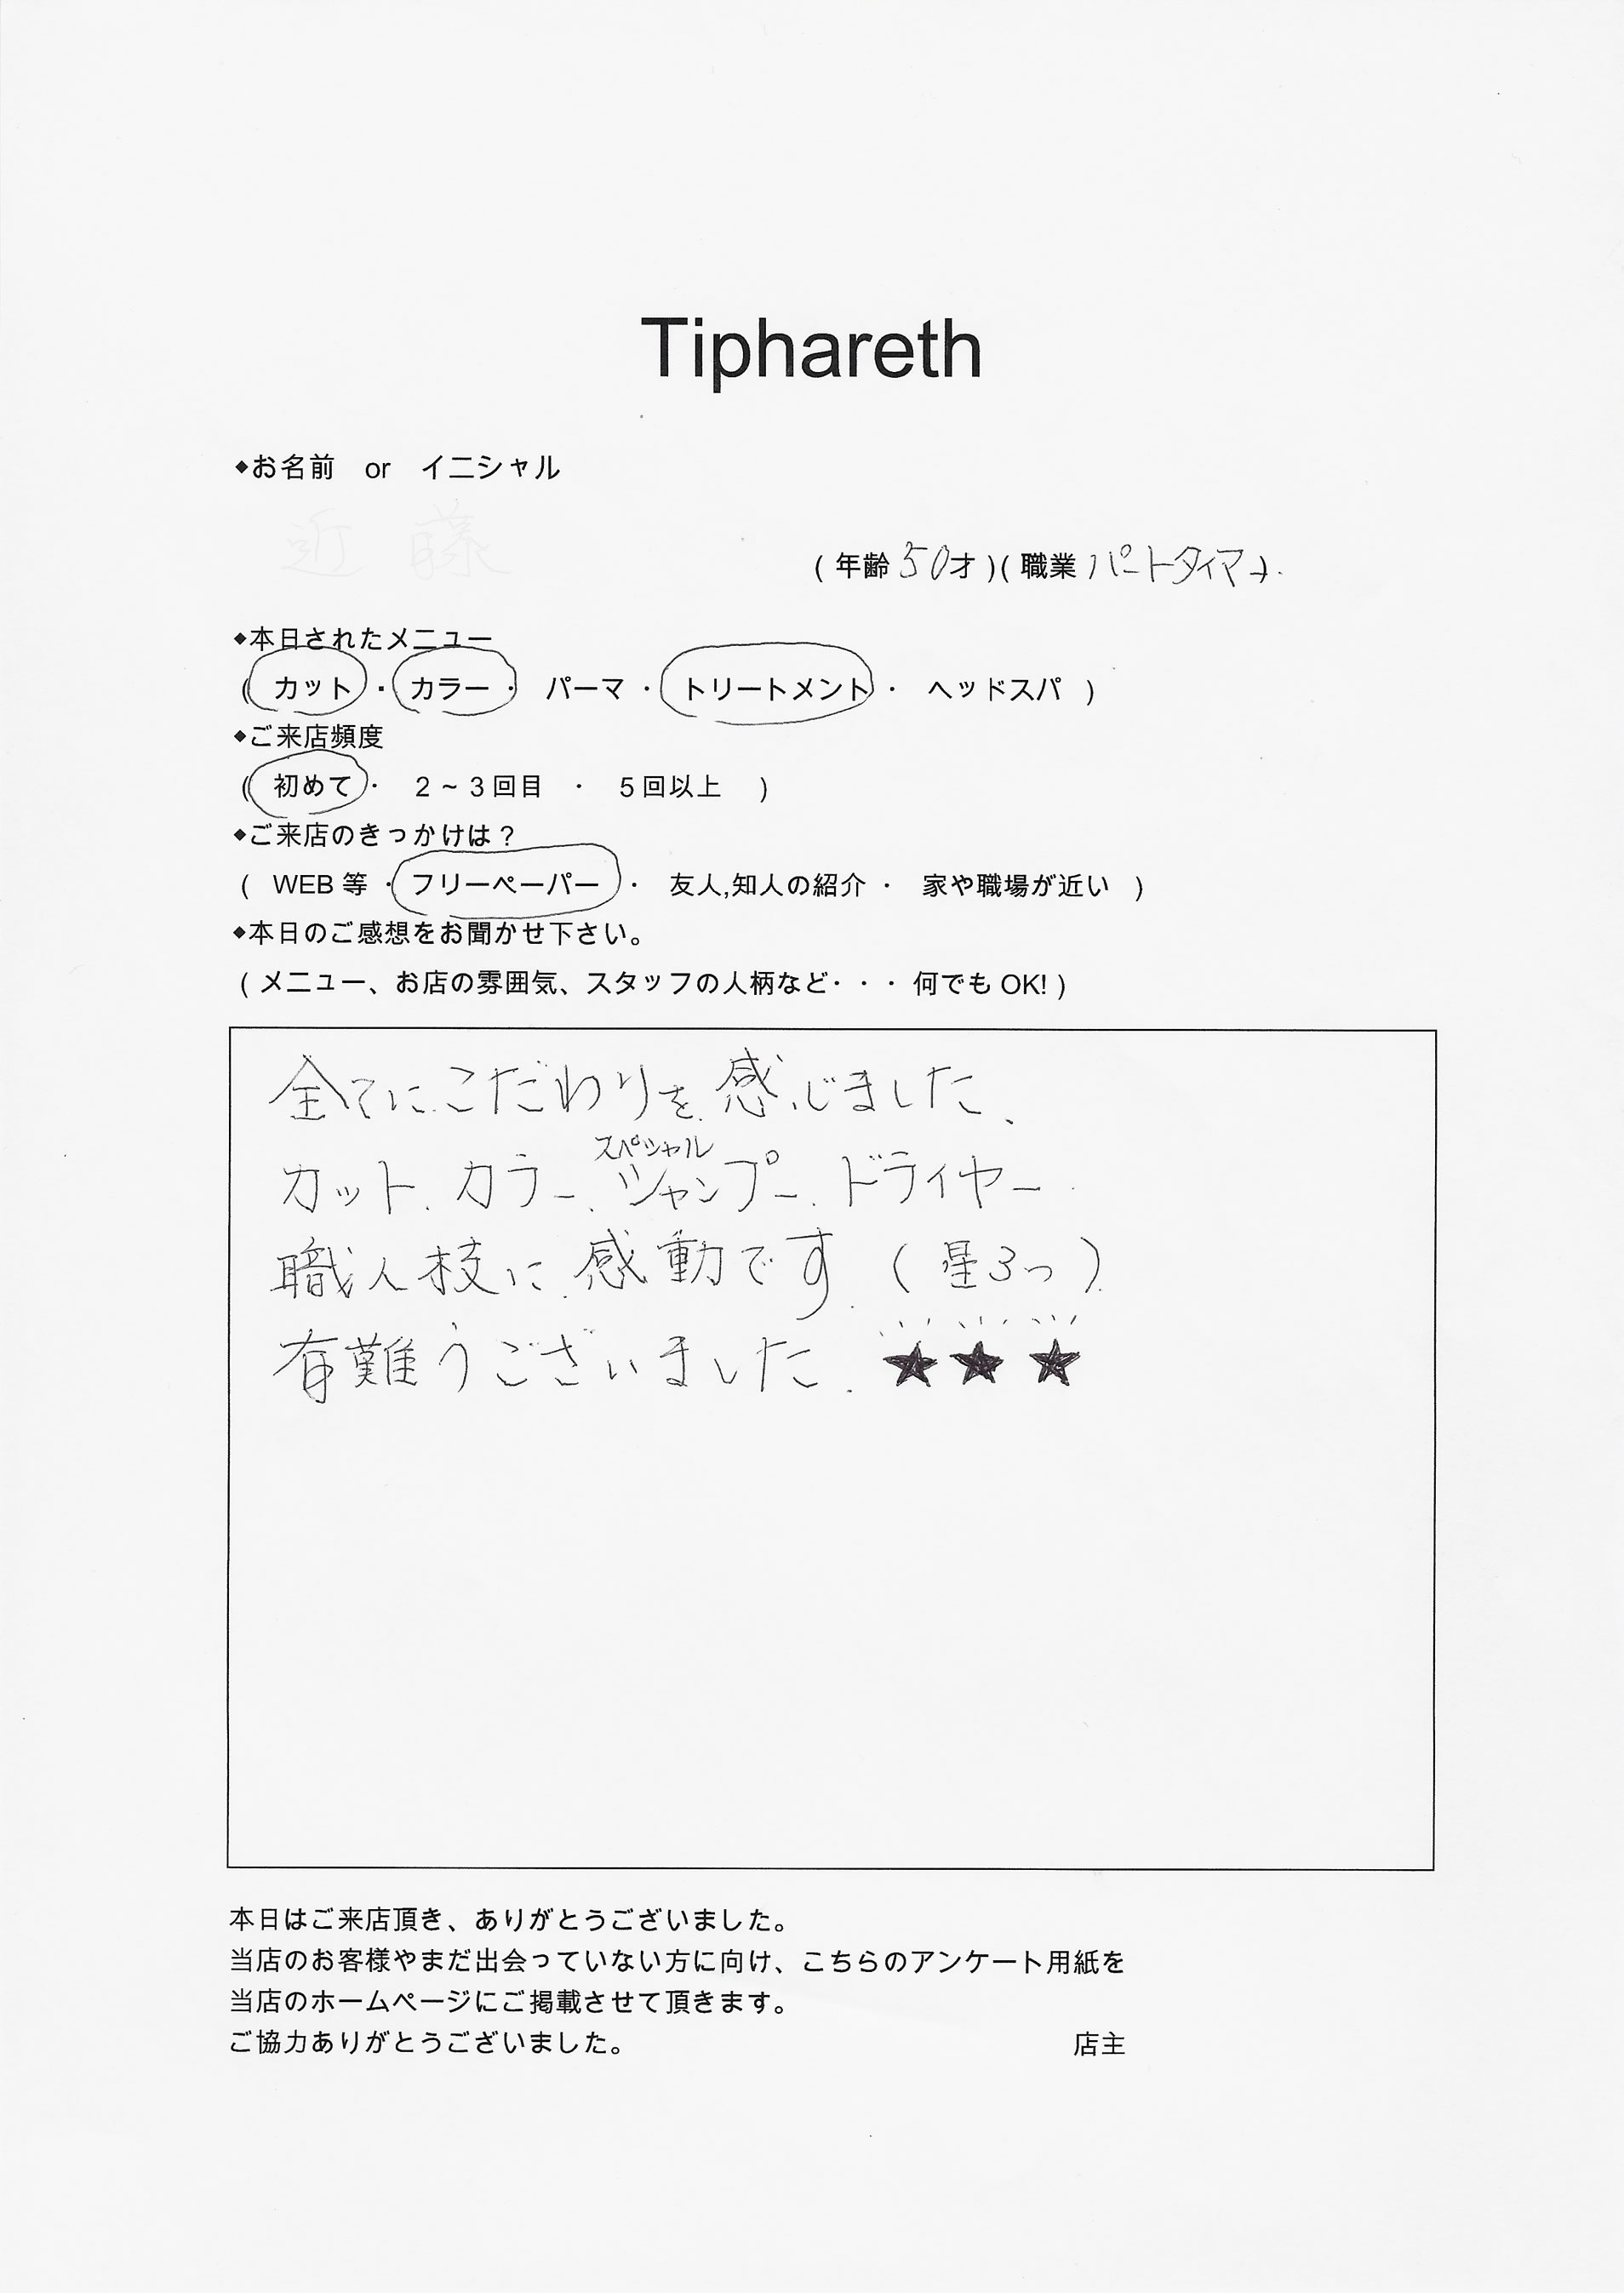 Tiphareth
◆お名前　or　イニシャル
近藤
( 年齢 50才 )( 職業 パートタイマー ).
◆本日されたメニュー
(　カット　・　カラー　・　パーマ　・　トリートメント　・　ヘッドスパ　)
◆ご来店頻度
(　初めて　・　2 ~ 3 回目　・　5 回以上　)
◆ご来店のきっかけは？
(　WEB 等　・　フリーペーパー　・　友人,知人の紹介　・　家や職場が近い　)
◆本日のご感想をお聞かせ下さい。
( メニュー、お店の雰囲気、スタッフの人柄など・・・ 何でも OK! )
全てにこだわりを感じました、
スペシャル
カット、カラー、シャンプー、ドライヤー
職人枝に感動です（星3つ）
有難うございました。★★★
本日はご来店頂き、ありがとうございました。
当店のお客様やまだ出会っていない方に向け、こちらのアンケート用紙を
当店のホームページにご掲載させて頂きます。
ご協力ありがとうございました。　店主